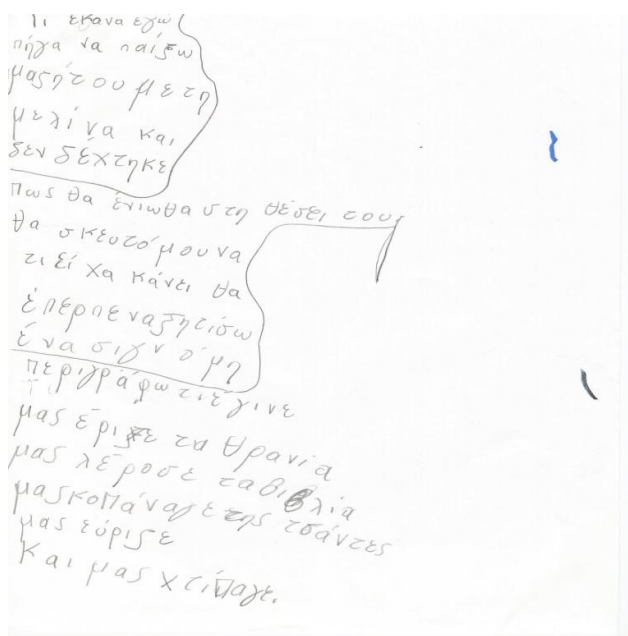 Τι έκανα εγώ
πήγα να παίξω
μαζήτου μετη
μελίνα και
δεν δέχτηκε
πως θα ένιωθα στη θέσει τους
θα σκευτόμουνα
τι εί χα κάνει θα
έπερπε ναζητίσω
ένα σιγν όμη
περιγράφω τιέγινε
μας έριξε τα θρανία
μας λέροσε ταβιβλία
μαςκοπάναγε της τσάντες
μας εύριζε
και μας χτίπαγε.